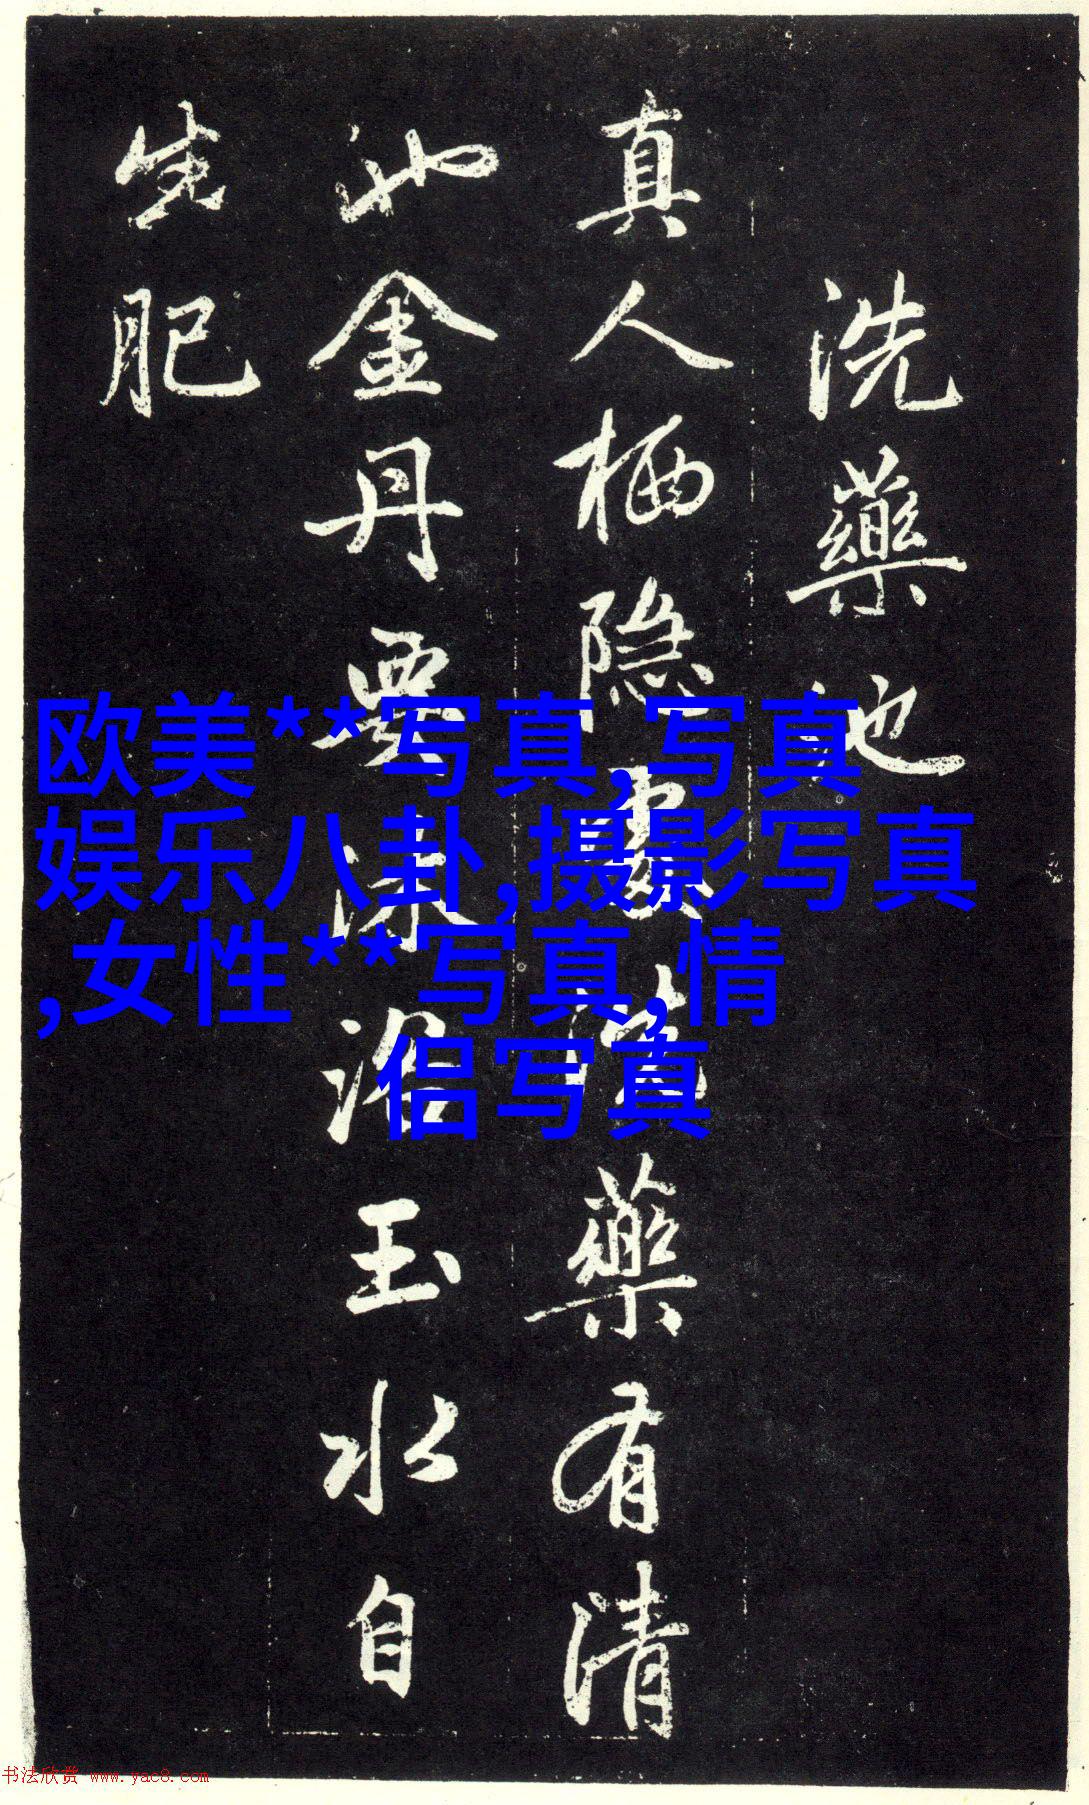 洗藥池
真人栖隐處洗藥有清
池金丹要沐浴玉水自
生肥
欧美**写真,写真
娱乐八卦,摄影写真
,女性**写真,情
侣写真
书法欣赏 www.yac8.com